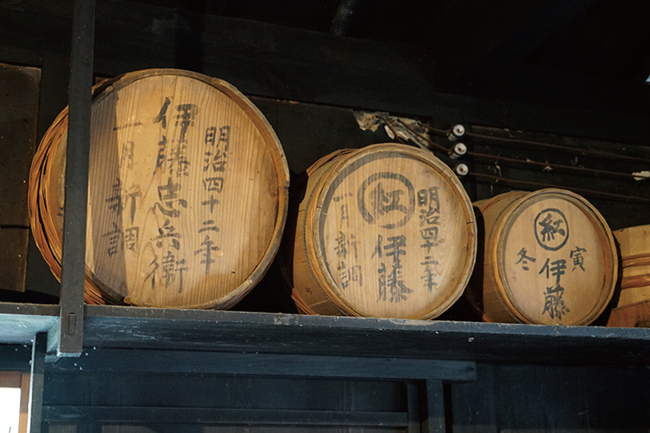 明治四十二年
伊藤忠兵衛
一月新調
明治四十二年
紅 伊藤
一月新調
寅
紅 伊藤
冬